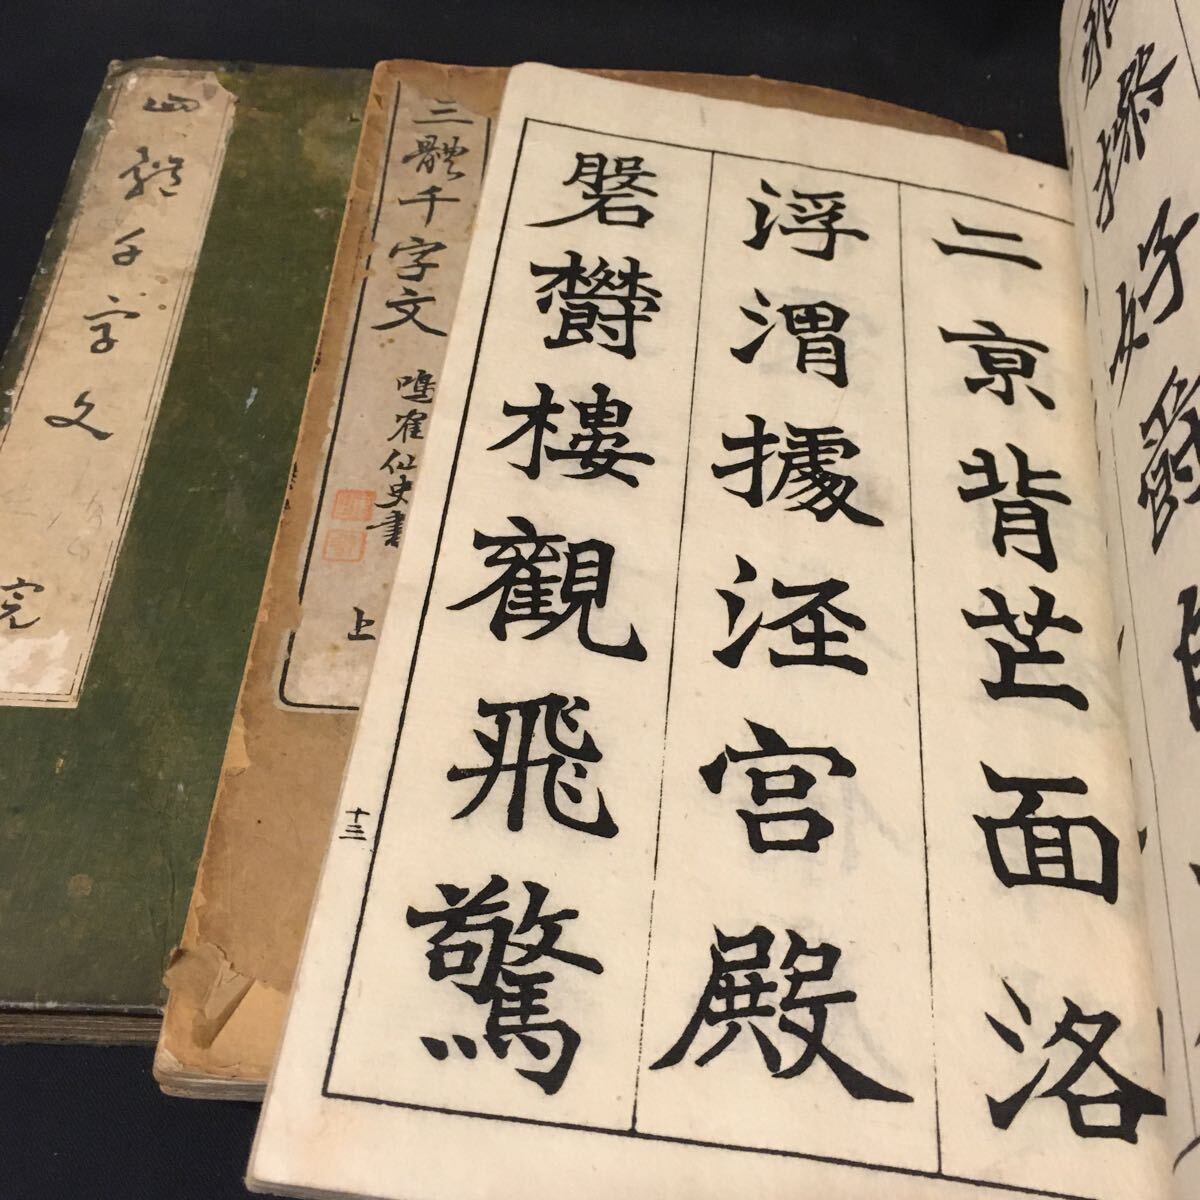 二京背芒面洛
浮渭據涇宮殿
磐欝樓觀飛驚
十三
三體千字文
鳴雀仙史書
上
四體千字文
完